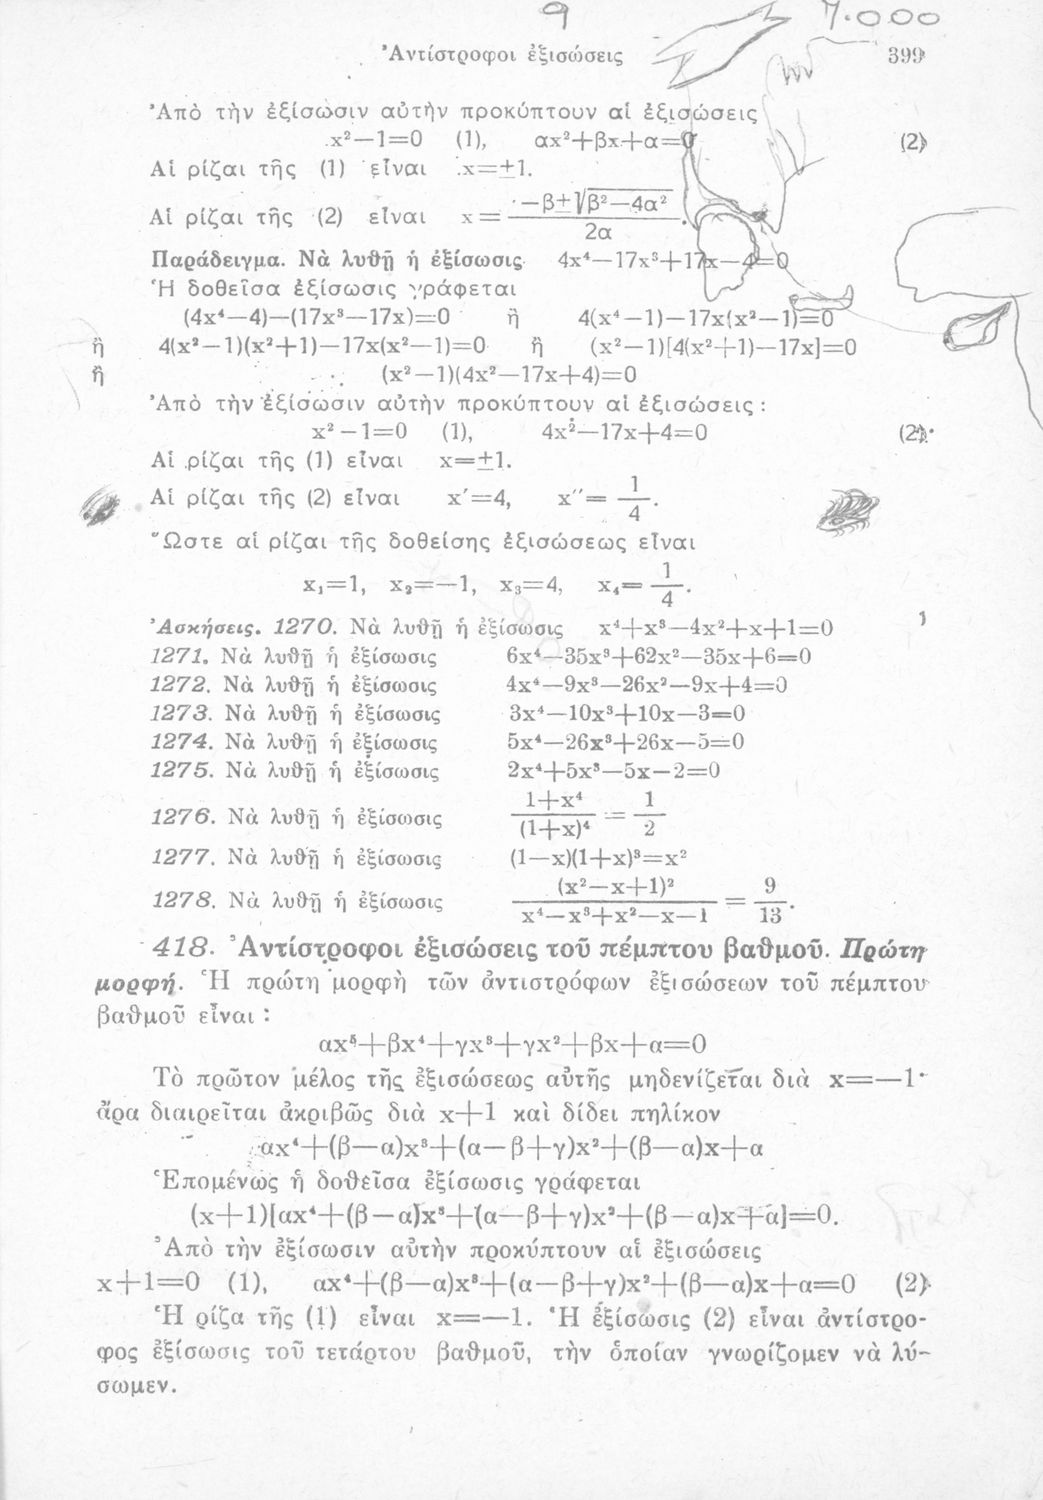 9
7.000
Ἀντίστροφοι ἐξισώσεις 399
Ἀπὸ τὴν ἐξίσωσιν αὐτὴν προκύπτουν αἱ ἐξισώσεις
x²—1=0 (1), αx²+βx+α=0 (2)
Αἱ ρίζαι τῆς (1) εἶναι x=±1.
Αἱ ρίζαι τῆς (2) εἶναι x = (—β±√(β²—4α²))/2α.
Παράδειγμα. Νὰ λυθῇ ἡ ἐξίσωσις 4x⁴—17x³+17x—4=0
Ἡ δοθεῖσα ἐξίσωσις γράφεται
(4x⁴—4)—(17x³—17x)=0 ἢ 4(x⁴—1)—17x(x²—1)=0
ἢ 4(x²—1)(x²+1)—17x(x²—1)=0 ἢ (x²—1)[4(x²+1)—17x]=0
ἢ (x²—1)(4x²—17x+4)=0
Ἀπὸ τὴν ἐξίσωσιν αὐτὴν προκύπτουν αἱ ἐξισώσεις :
x²—1=0 (1), 4x²—17x+4=0 (2)
Αἱ ρίζαι τῆς (1) εἶναι x=±1.
Αἱ ρίζαι τῆς (2) εἶναι x΄=4, x΄΄= 1/4.
Ὥστε αἱ ρίζαι τῆς δοθείσης ἐξισώσεως εἶναι
x₁=1, x₂=—1, x₃=4, x₄= 1/4.
Ἀσκήσεις. 1270. Νὰ λυθῇ ἡ ἐξίσωσις x⁴+x³—4x²+x+1=0
1271. Νὰ λυθῇ ἡ ἐξίσωσις 6x⁴—35x³+62x²—35x+6=0
1272. Νὰ λυθῇ ἡ ἐξίσωσις 4x⁴—9x³—26x²—9x+4=0
1273. Νὰ λυθῇ ἡ ἐξίσωσις 3x⁴—10x³+10x—3=0
1274. Νὰ λυθῇ ἡ ἐξίσωσις 5x⁴—26x³+26x—5=0
1275. Νὰ λυθῇ ἡ ἐξίσωσις 2x⁴+5x³—5x—2=0
1276. Νὰ λυθῇ ἡ ἐξίσωσις (1+x⁴)/(1+x)⁴ = 1/2
1277. Νὰ λυθῇ ἡ ἐξίσωσις (1—x)(1+x)³=x²
1278. Νὰ λυθῇ ἡ ἐξίσωσις (x²—x+1)²/(x⁴—x³+x²—x—1) = 9/13.
418. Ἀντίστροφοι ἐξισώσεις τοῦ πέμπτου βαθμοῦ. Πρώτη
μορφή. Ἡ πρώτη μορφὴ τῶν ἀντιστρόφων ἐξισώσεων τοῦ πέμπτου
βαθμοῦ εἶναι :
αx⁵+βx⁴+γx³+γx²+βx+α=0
Τὸ πρῶτον μέλος τῆς ἐξισώσεως αὐτῆς μηδενίζεται διὰ x=—1·
ἄρα διαιρεῖται ἀκριβῶς διὰ x+1 καὶ δίδει πηλίκον
αx⁴+(β—α)x³+(α—β+γ)x²+(β—α)x+α
Ἑπομένως ἡ δοθεῖσα ἐξίσωσις γράφεται
(x+1)[αx⁴+(β—α)x³+(α—β+γ)x²+(β—α)x+α]=0.
Ἀπὸ τὴν ἐξίσωσιν αὐτὴν προκύπτουν αἱ ἐξισώσεις
x+1=0 (1), αx⁴+(β—α)x³+(α—β+γ)x²+(β—α)x+α=0 (2)
Ἡ ρίζα τῆς (1) εἶναι x=—1. Ἡ ἐξίσωσις (2) εἶναι ἀντίστρο-
φος ἐξίσωσις τοῦ τετάρτου βαθμοῦ, τὴν ὁποίαν γνωρίζομεν νὰ λύ-
σωμεν.